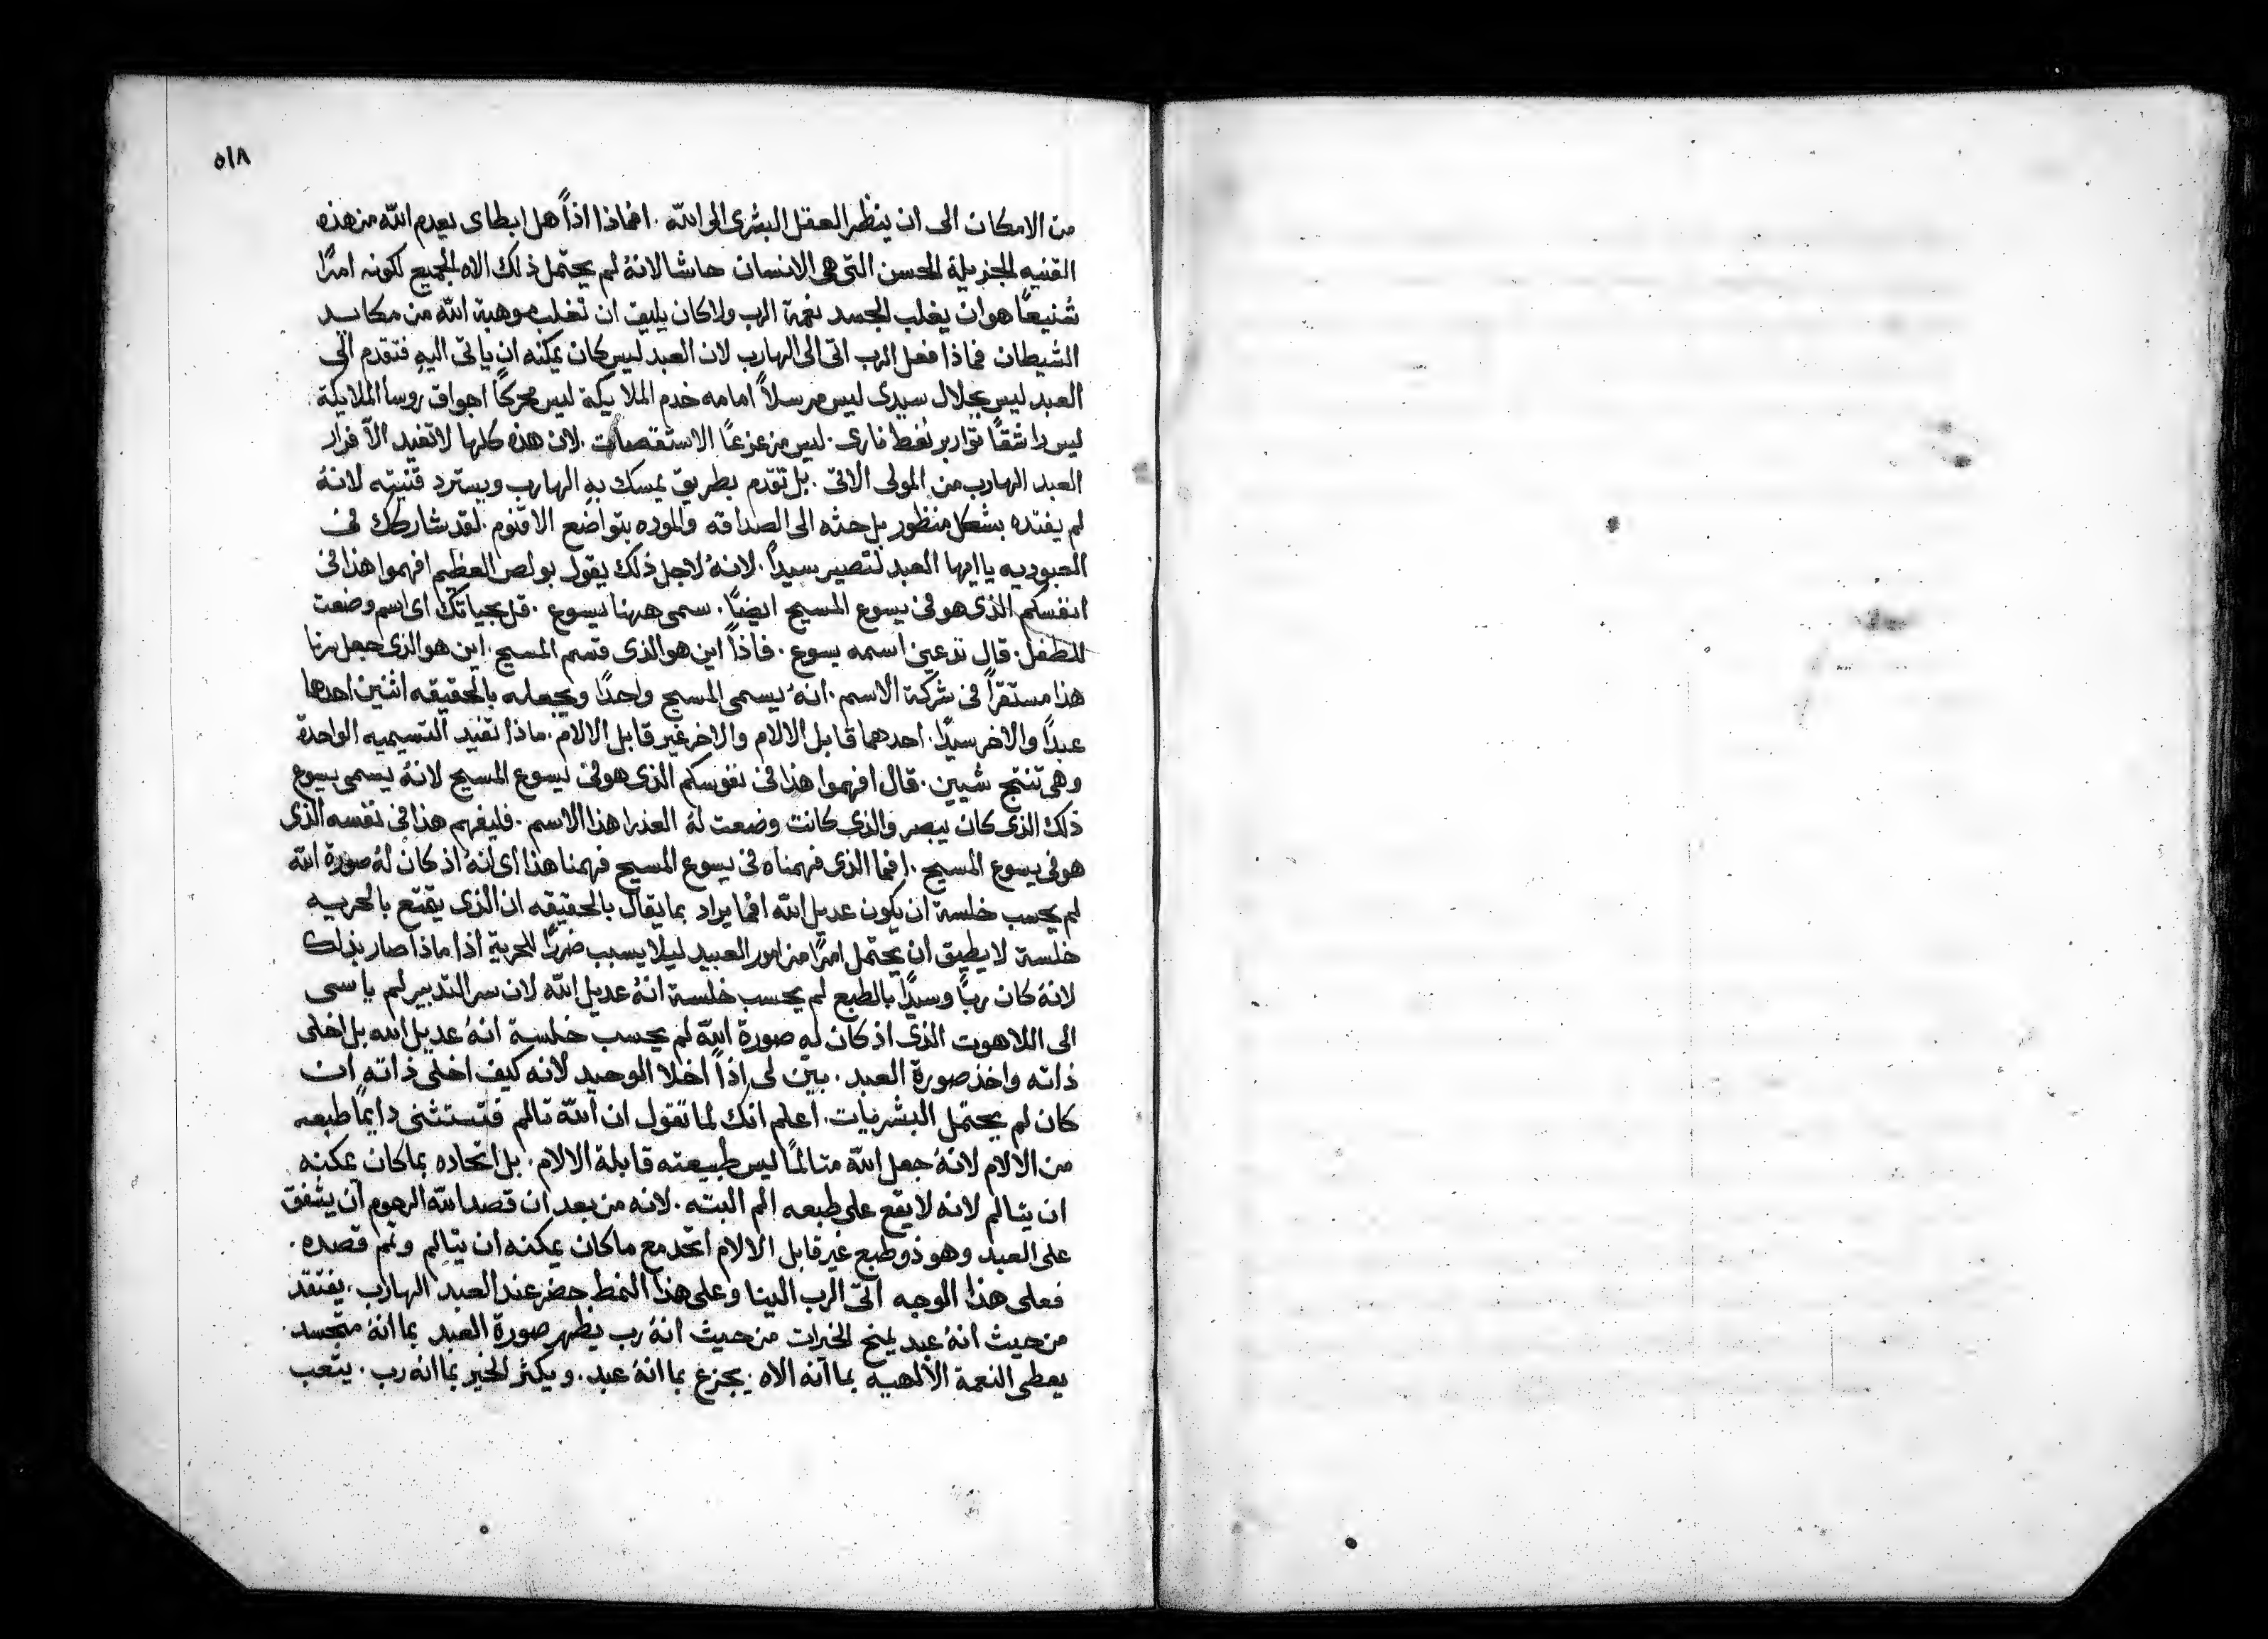 ٥١٨
من الامكان الى ان ينظر العقل البشرى الى الله . افماذا اذاً هل ابطاى يعدم الله من هذه
القنيه الجزيلة الحسن التى هى الانسان حاشا لانهُ لم يحتمل ذلك الاه الجميع لكونه امرًا
شنيعًا هو ان يغلب الجسد نعمة الرب ولا كان يليق ان تغلب موهبة الله من مكايد
الشيطان فماذا فعل الرب اتى الى الهارب لان العبد ليس كان يمكنه ان ياتى اليهِ فتقدم الى
العبد ليس بجلال سيدى ليس مرسلاً امامه خدم الملايكة ليس محركًا اجواق روسا الملايكة
ليس راشقًا نفط نارى . ليس مزعزعًا الاستقصات . لان هذه كلها لا تفيد الاّ فرار
العبد الهارب من المولى الاتى . بل تقدم بطريق يمسك بهِ الهارب ويسترد قنيته لانهُ
لم يفتده بشكل منظور بل حثه الى الصداقه والموده بتواضع الاقنوم . لقد شاركك فى
العبوديه يا ايها العبد لتصير سيداً . لانهُ لاجل ذلك يقول بولص العظيم افهموا هذا فى
انفسكم الذى هو فى يسوع المسيح ايضًا . سمى ههنا يسوع . قل بحياتك اى اسم وضعت
للطفل . قال تدعين اسمه يسوع . فاذاً اين هو الذى قسم المسيح . اين هو الذى جعل
هذا مستقراً فى شركة الاسم . انهُ يسمى المسيح واحدًا ويجعله بالحقيقه اثنين احدها
عبدًا والاخر سيدًا . احدهما قابل الالام والاخر غير قابل الالام . ماذا تفيد التسيميه الواحدة
وهى تنتج شيين . قال افهموا هذا فى نفوسكم الذى هو فى يسوع المسيح لانهُ يسمى يسوع
ذلك الذى كان يبصر والذى كانت وضعت لهُ العذرا هذا الاسم . فليفهم هذا فى نفسه الذى
هو فى يسوع المسيح . افما الذى فهمناه فى يسوع المسيح فهمنا هذا اى انهُ اذ كان لهُ صورة الله
لم يحسب خلسة ان يكون عديل الله افما يراد بما يقال بالحقيقه ان الذى يتمتع بالحريه
خلسة لا يطيق ان يحتمل امرًا من امور العبيد ليلا يسبب ضررًا للحرية اذا ماذا صار بذلك
لانهُ كان ربًا وسيدًا بالطبع لم يحسب خلسة انهُ عديل الله لان سر التدبير لم ياسى
الى اللاهوت الذى اذ كان له صورة الله لم يحسب خلسة انهُ عديل الله بل اخلى
ذاته واخذ صورة العبد . بين لى اذاً اخلا الوحيد لانه كيف اخلى ذاته ان
كان لم يحتمل البشريات . اعلم انك لما تقول ان الله تالم فتستثنى دايمًا طبعه
من الالام لانهُ جعل الله متالمًا ليس طبيعته قابلة الالام . بل اتحاده بما كان يمكنه
ان يتالم لانه لا يقع على طبعه الم البته . لانه من بعد ان قصد الله الرحوم ان يشفق
على العبد وهو ذو طبع غير قابل الالام اتحد مع ما كان يمكنه ان يتالم وتمم قصده .
فعلى هذا الوجه اتى الرب الينا وعلى هذا النمط حضر عند العبد الهارب . يفتقد
من حيث انهُ عبد يمنح الخيرات من حيث انهُ رب يظهر صورة العبد بما انهُ متجسد .
يعطى النعمة الالهيه بما انه الاه . يجزع بما انهُ عبد . ويكثر الخير بما انه رب . يتعب